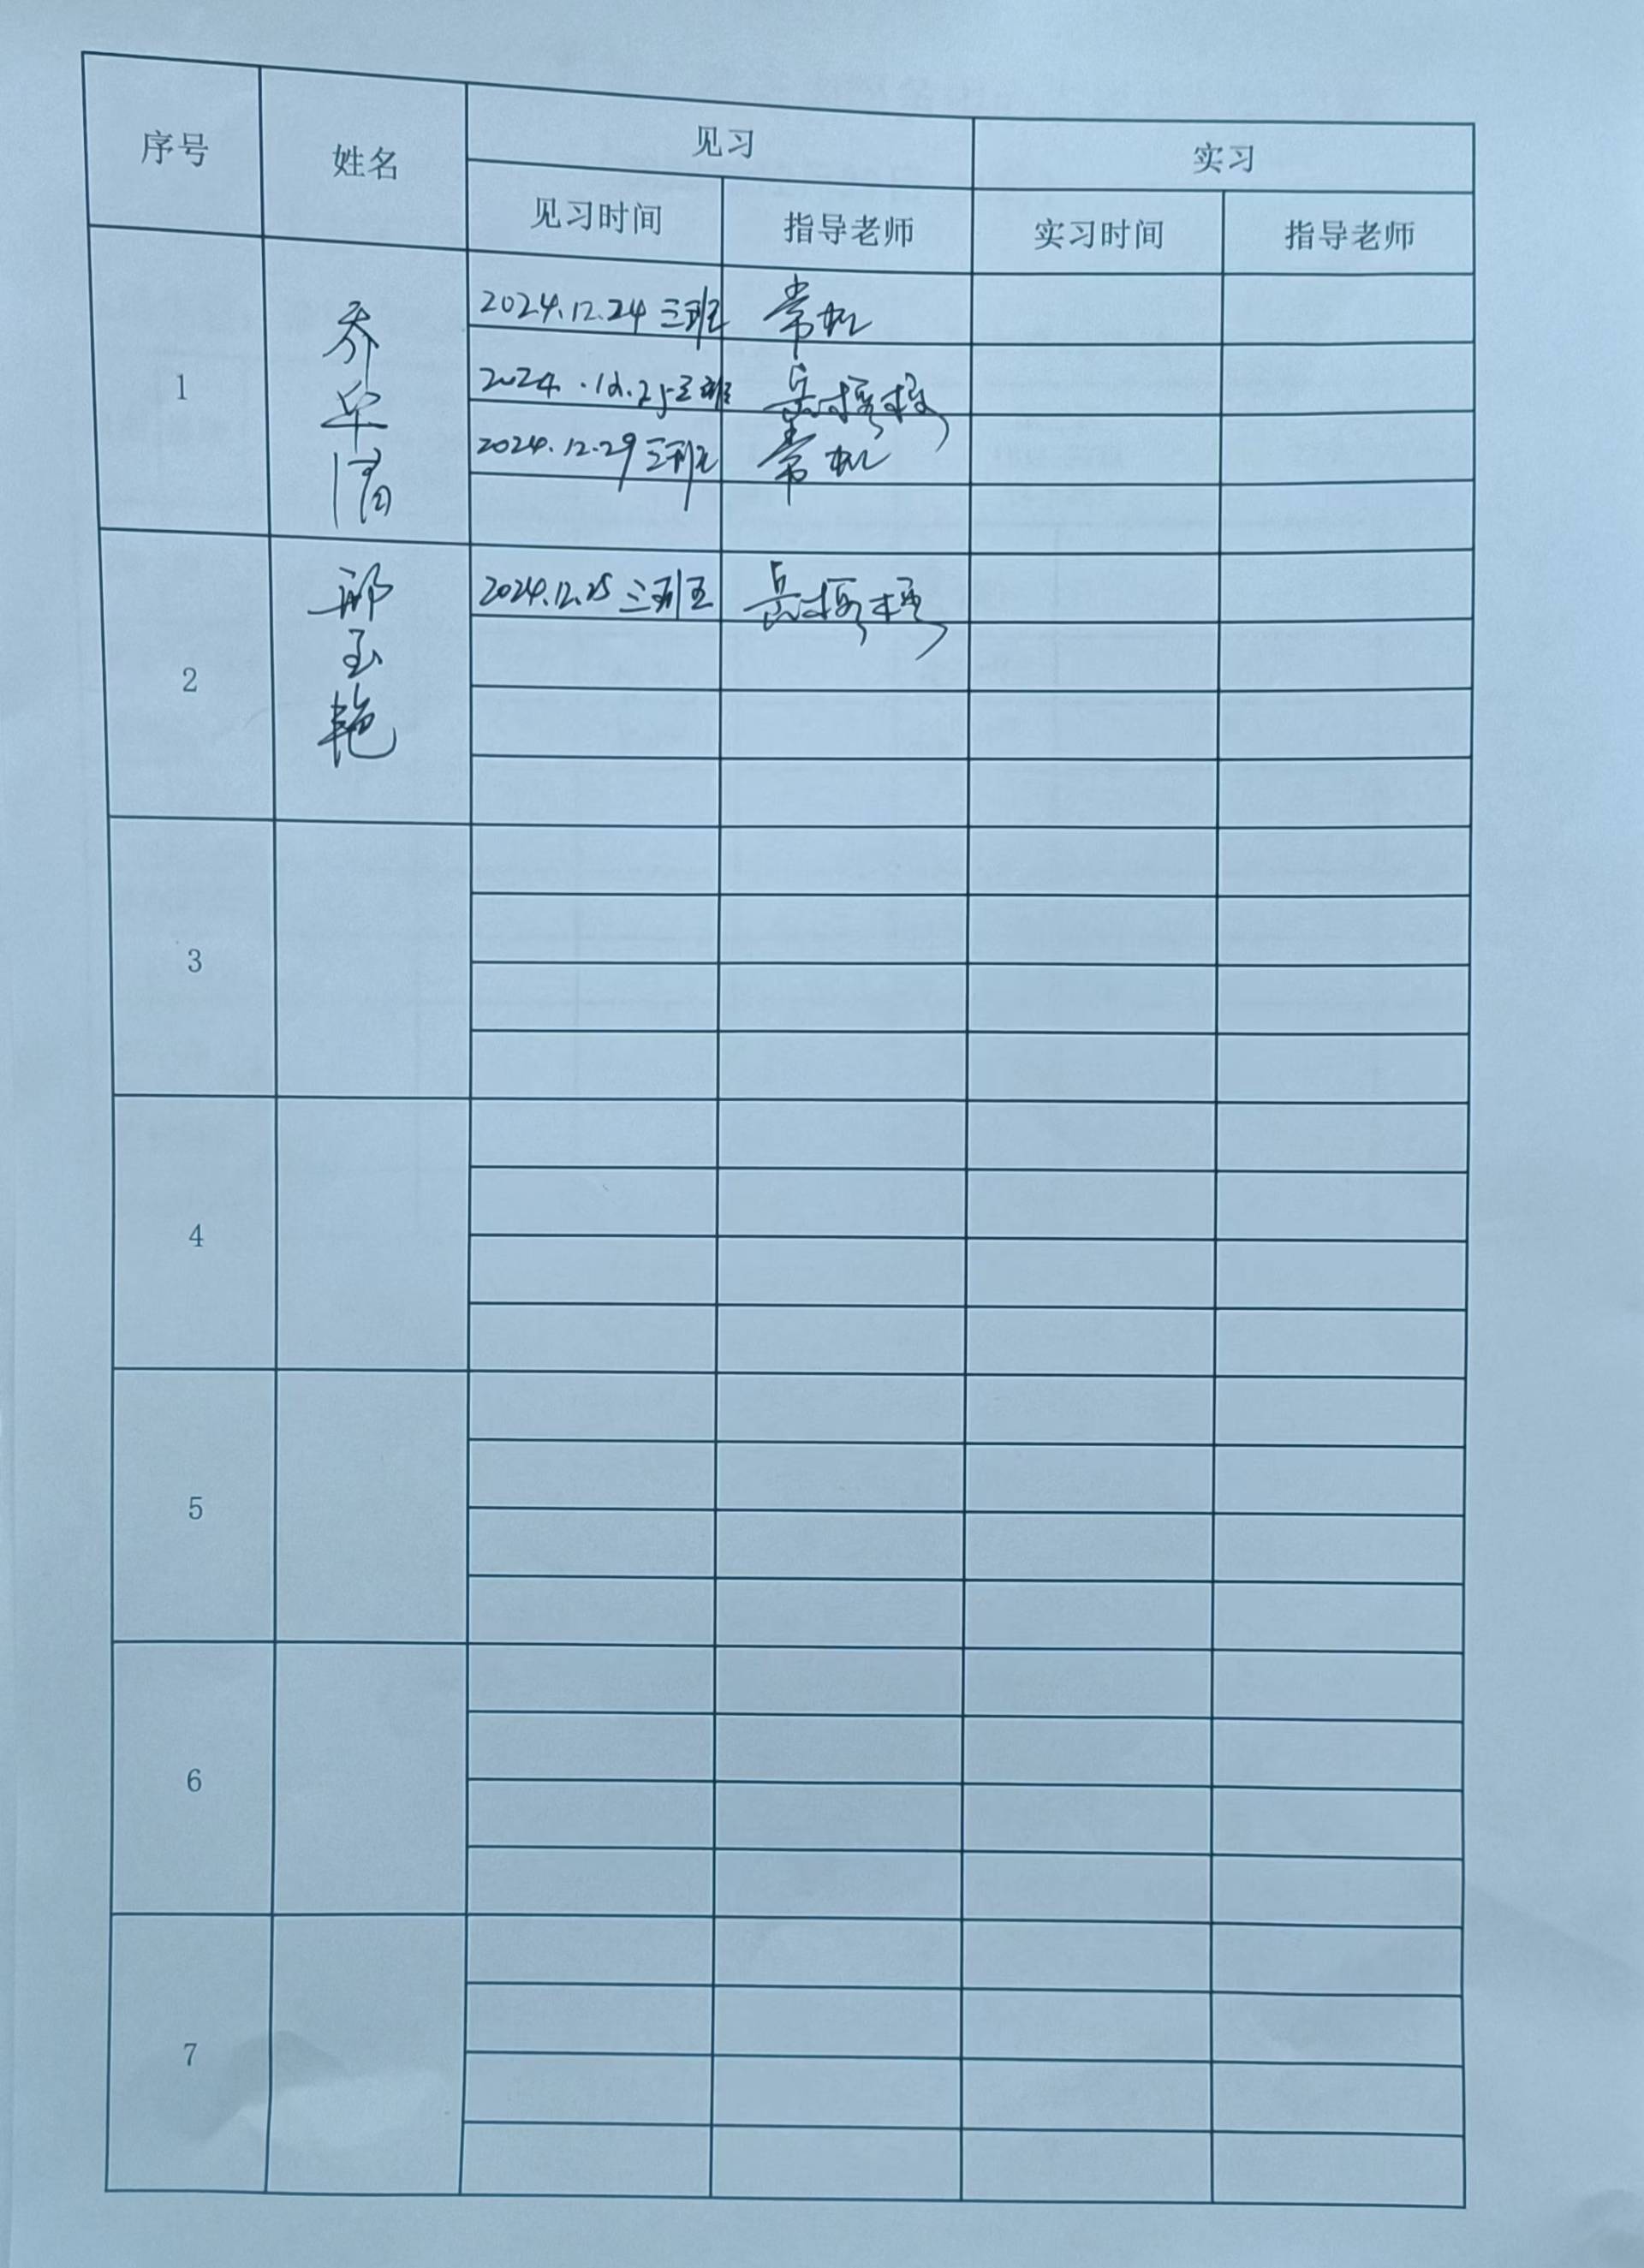 序号 姓名 见习 实习
见习时间 指导老师 实习时间 指导老师
1
2024.12.24 三班 常
2024.12.25 三班
2024.12.29 三班 常
2 玉艳
2024.12.25 三班
3
4
5
6
7